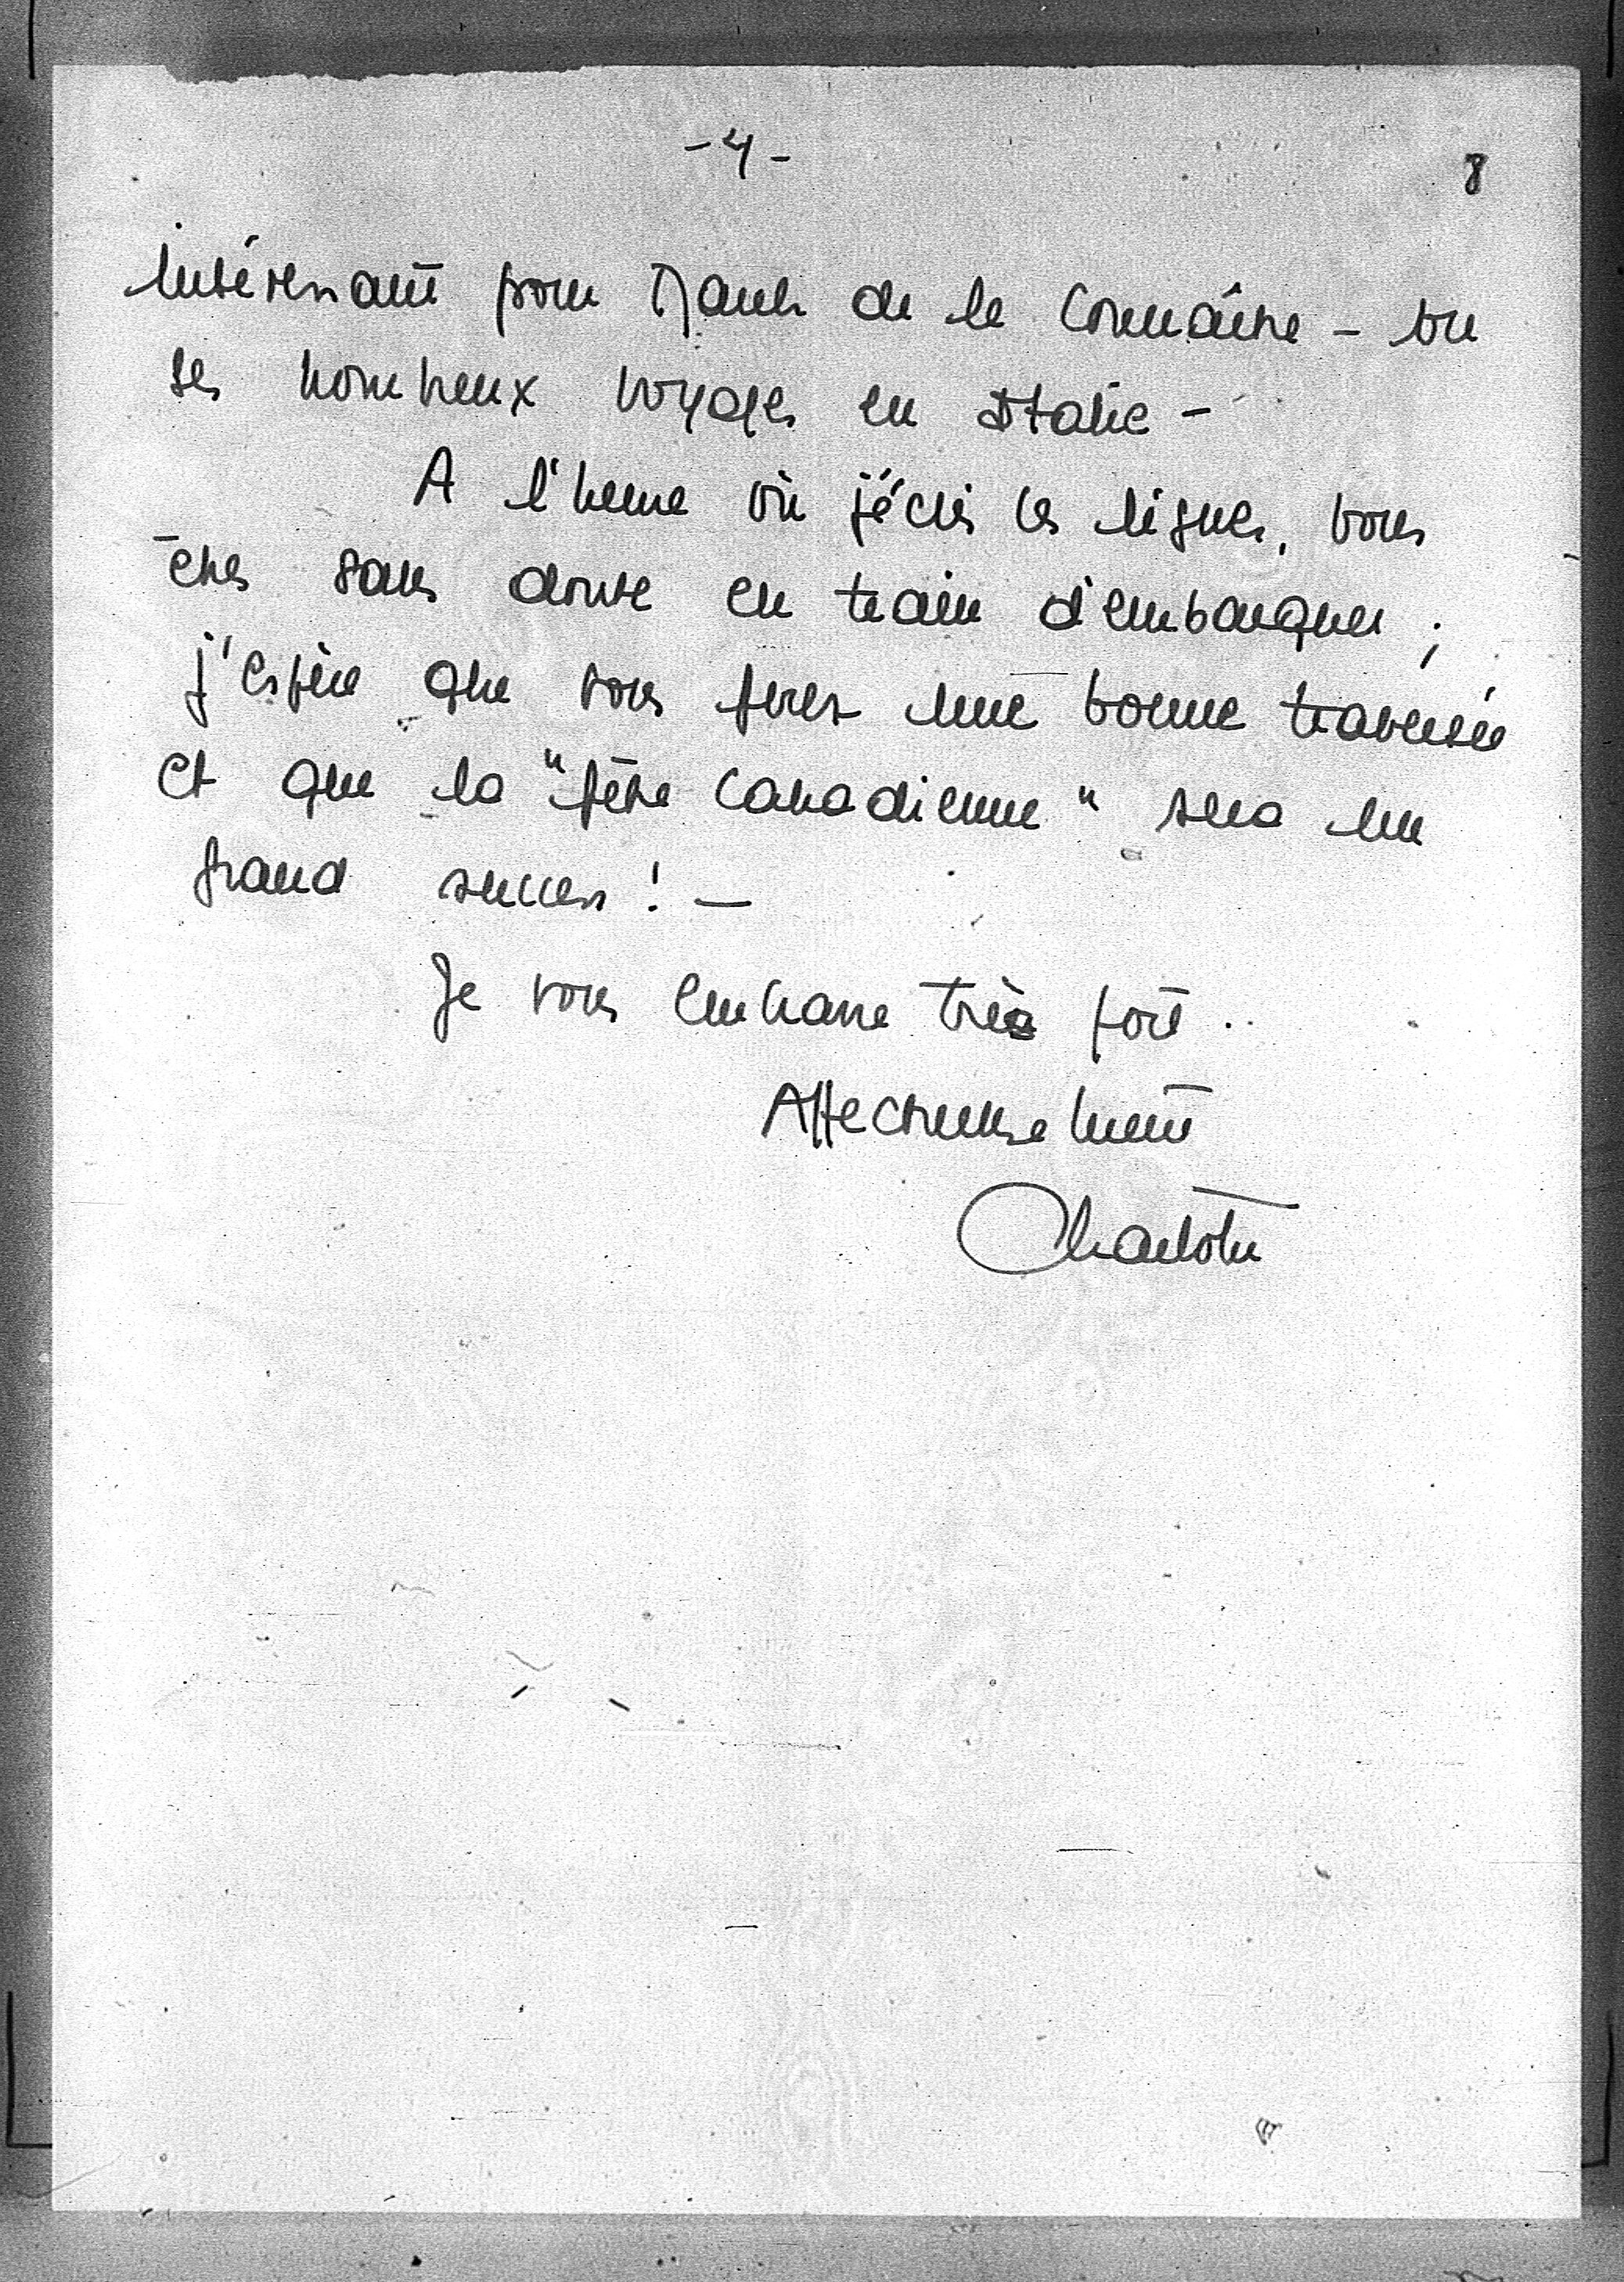 - 4 -
8
intéressant pour de le connaître - vu
ses nombreux voyages en Italie -
A l'heure où j'écris ces lignes, vous
êtes sans doute en train d'embarquer ;
j'espère que vous ferez une bonne traversée
et que la "fête Canadienne" sera un
grand succès ! -
Je vous embrasse très fort ..
Affectueusement
Charlotte